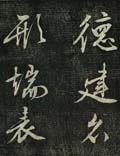 德建名
形端表